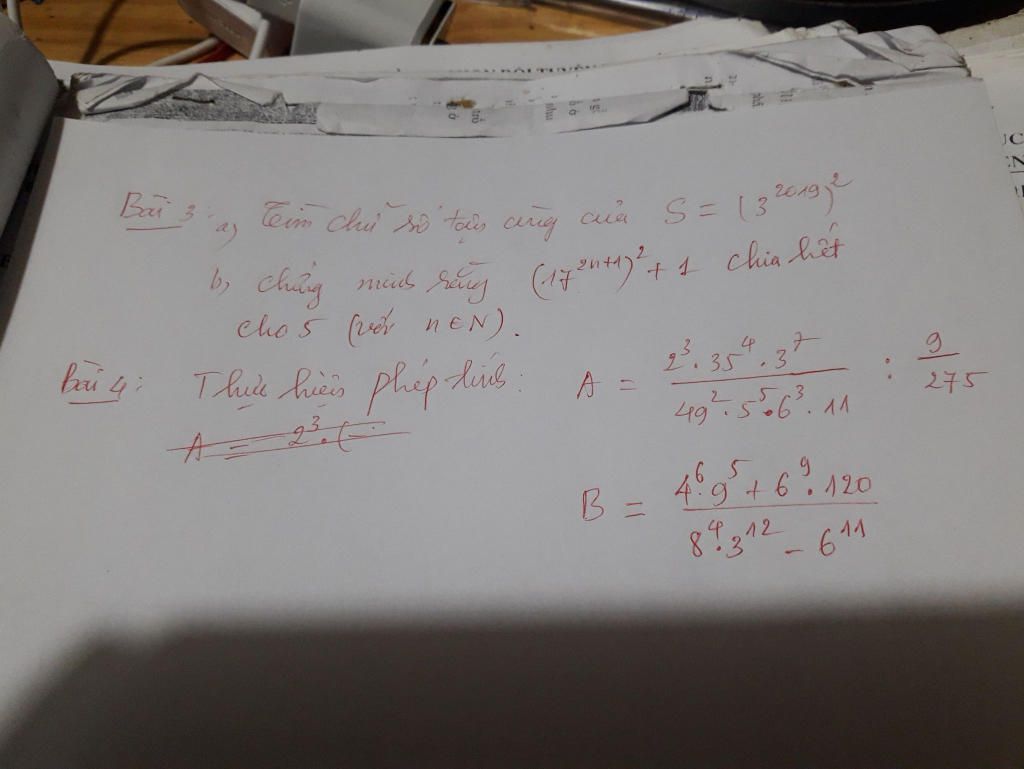 Bài 3: a, Tìm chữ số tận cùng của S = (3^2019)^2
b, chứng minh rằng (17^2n+1)^2 + 1 chia hết
cho 5 (với n ∈ N).
Bài 4: Thực hiện phép tính: A = 2^3 . 35^4 . 3^7 / 49^2 . 5^5 . 6^3 . 11 : 9/275
A = 2^3 . (
B = 4^6 . 9^5 + 6^9 . 120 / 8^4 . 3^12 - 6^11